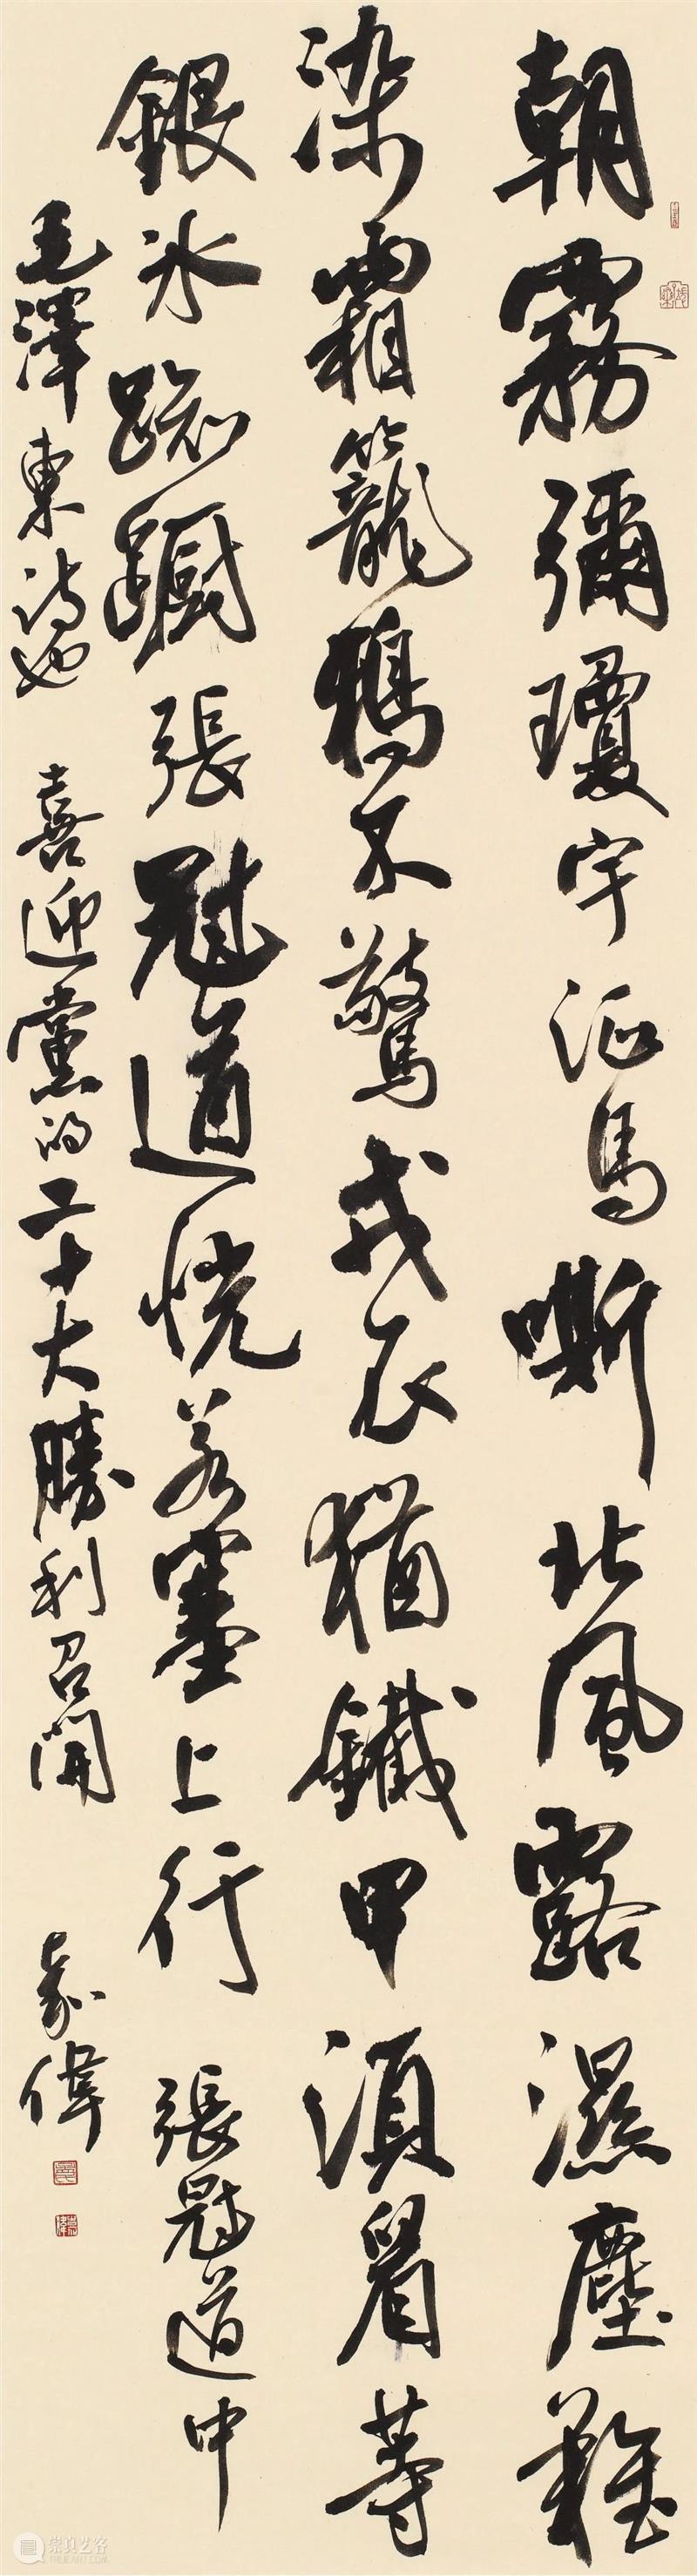 朝霧彌瓊宇征馬嘶北風露濕塵難
染霜籠鴉不驚戎衣猶鐵甲須眉等
銀冰踟躕張冠道恍若塞上行 張冠道中
毛澤東詩也 喜迎黨的二十大勝利召開 偉
崇真艺客